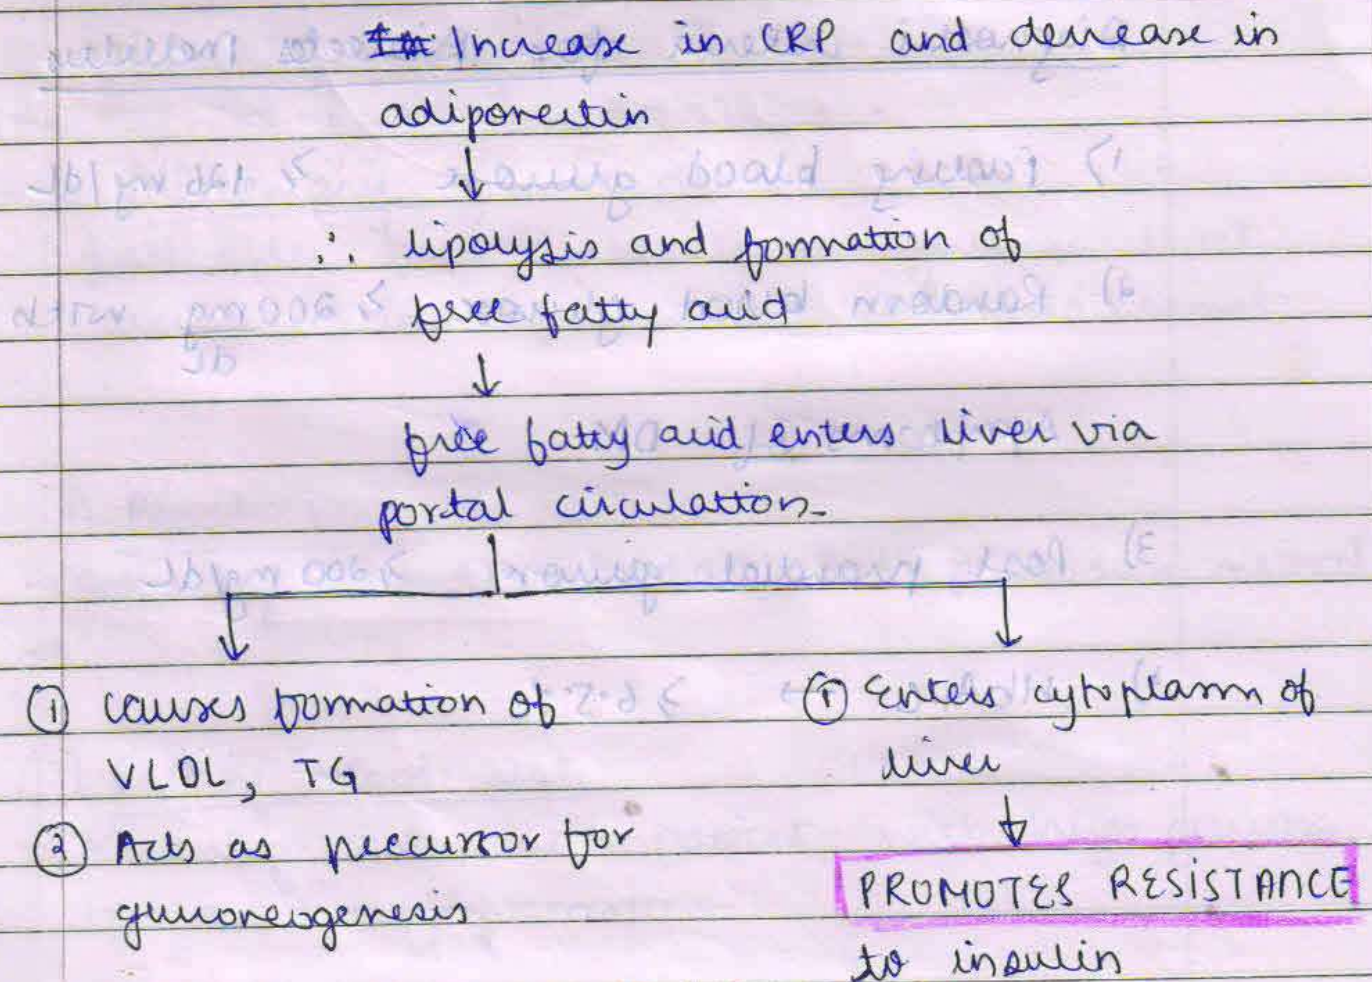 Increase in CRP and decrease in
adiponectin
↓
∴ lipolysis and formation of
free fatty acid
↓
free fatty acid enters liver via
portal circulation.
① causes formation of
VLDL, TG
② Acts as precursor for
gluconeogenesis
① Enters cytoplasm of
liver
↓
PROMOTES RESISTANCE
to insulin